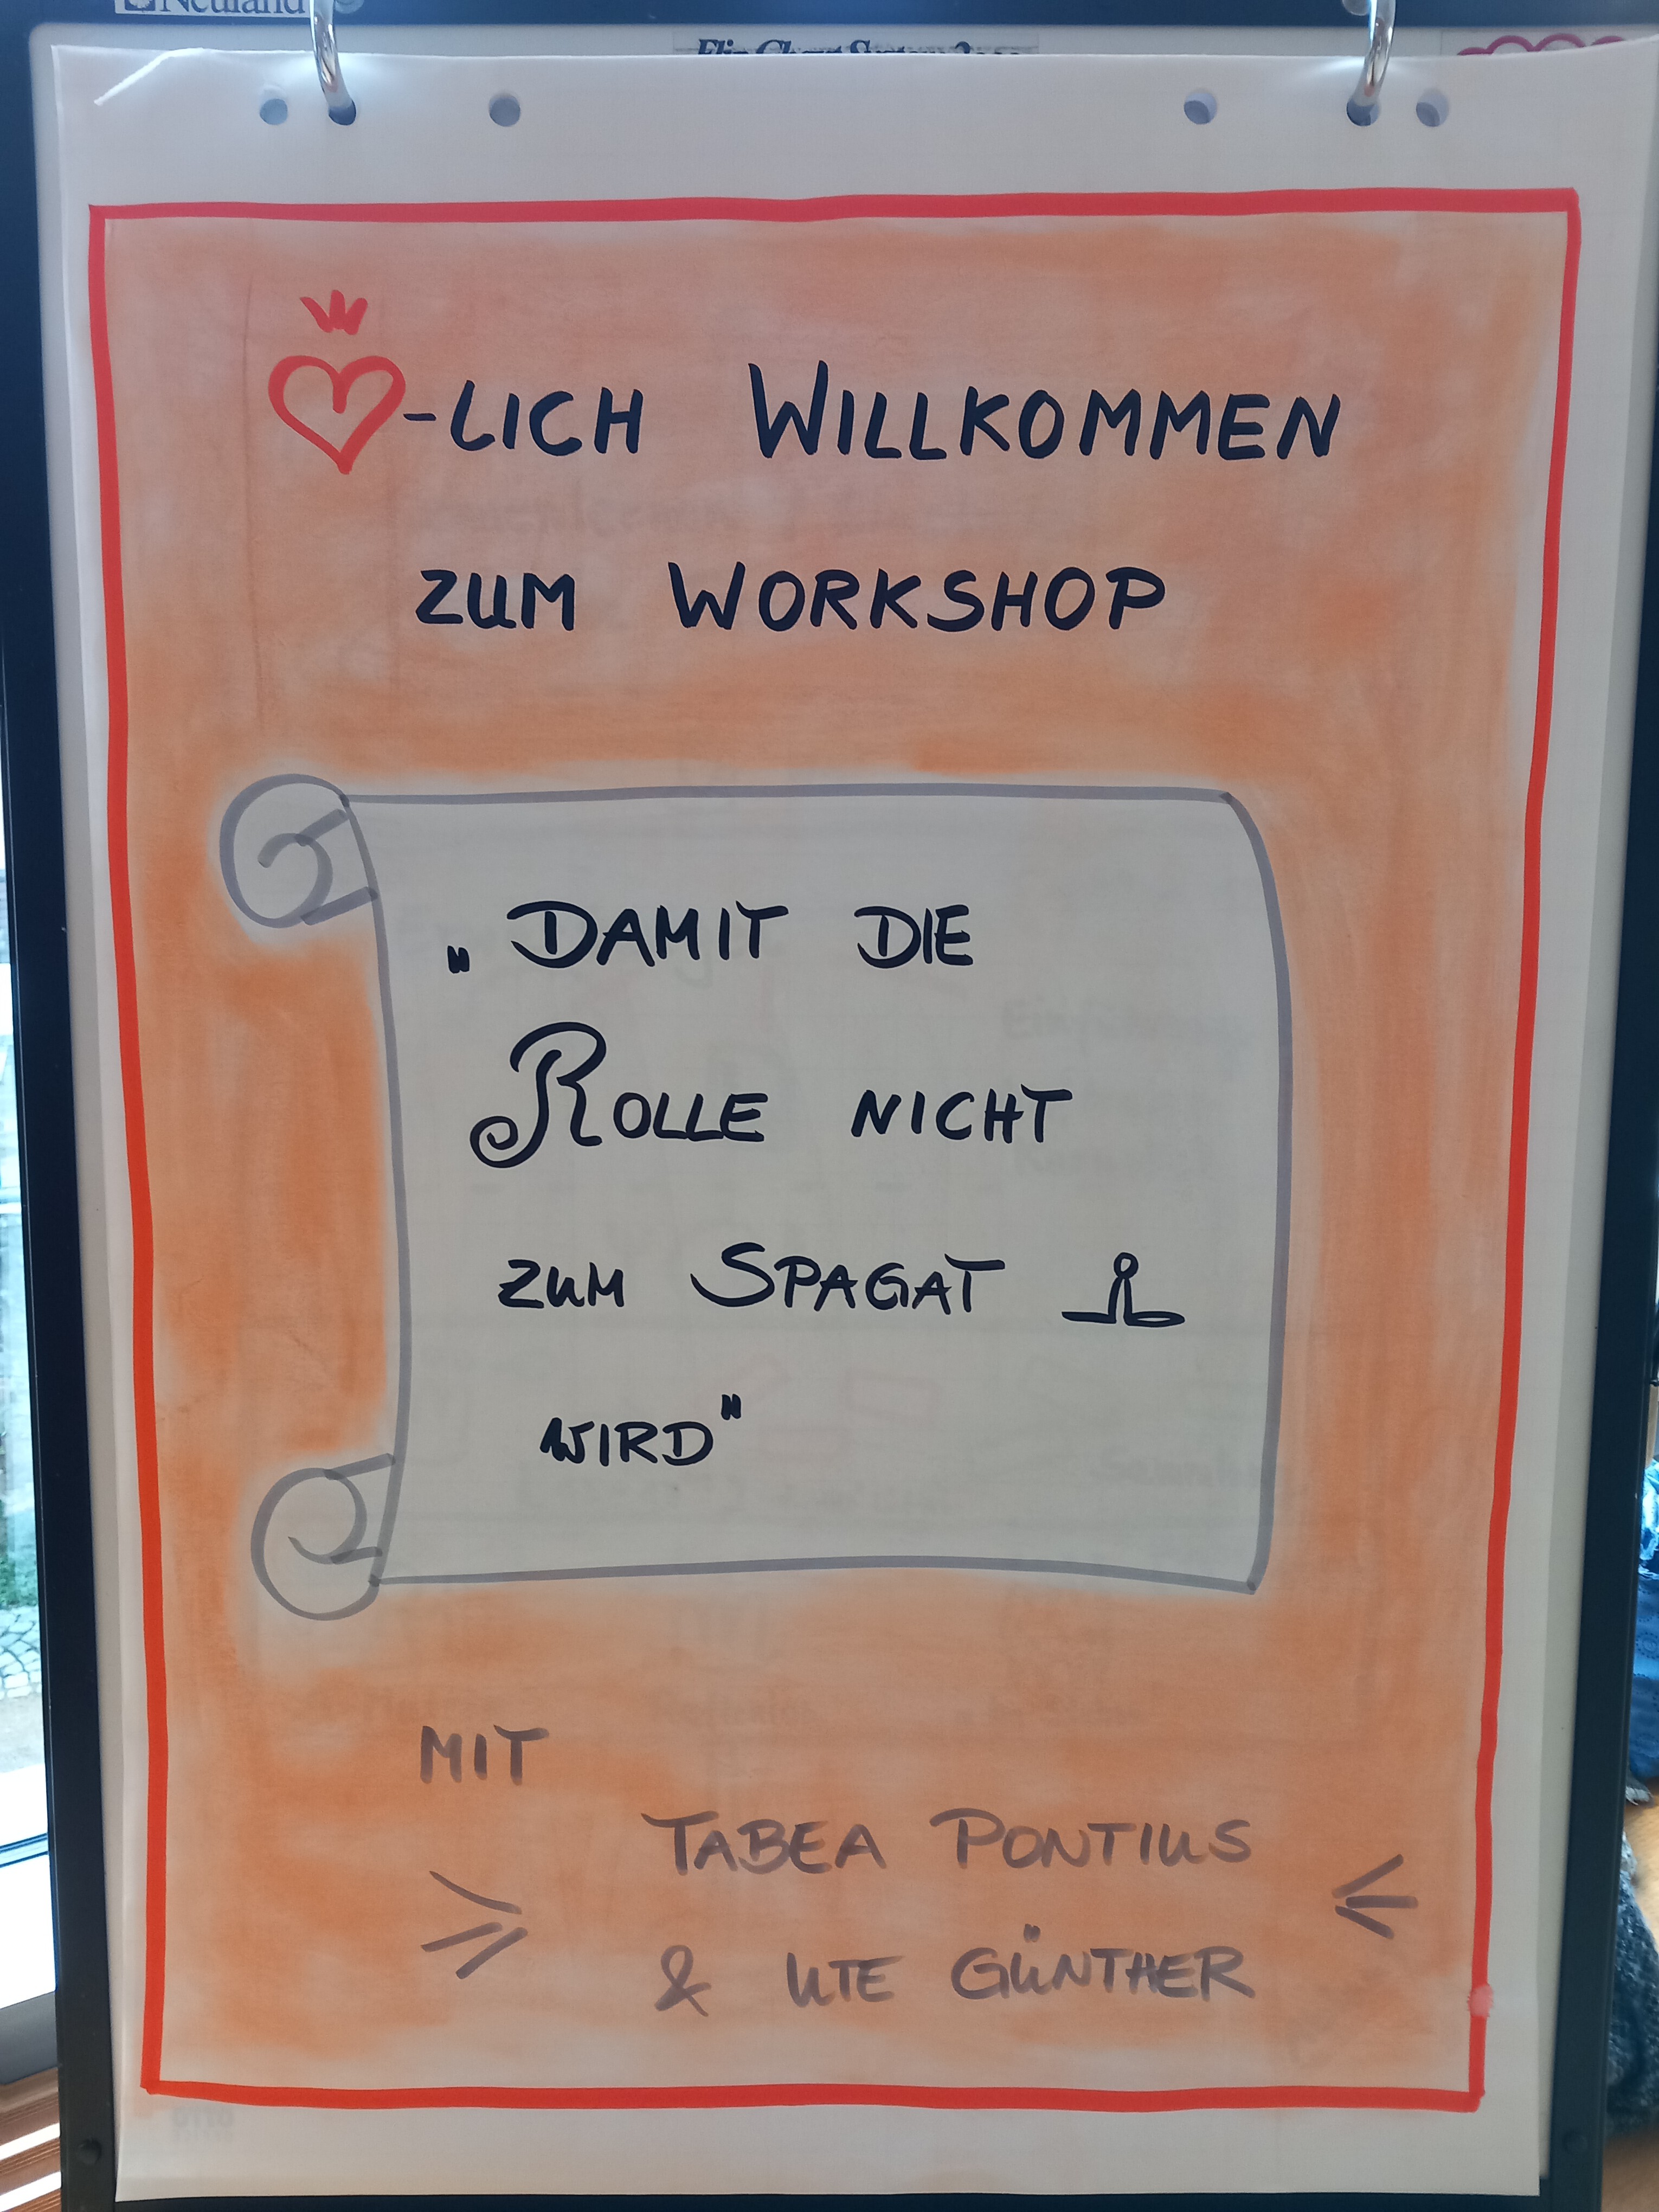 Neuland
Flip Chart System
♡-LICH WILLKOMMEN
ZUM WORKSHOP
„DAMIT DIE
ROLLE NICHT
ZUM SPAGAT
WIRD"
MIT
TABEA PONTIUS
& UTE GÜNTHER